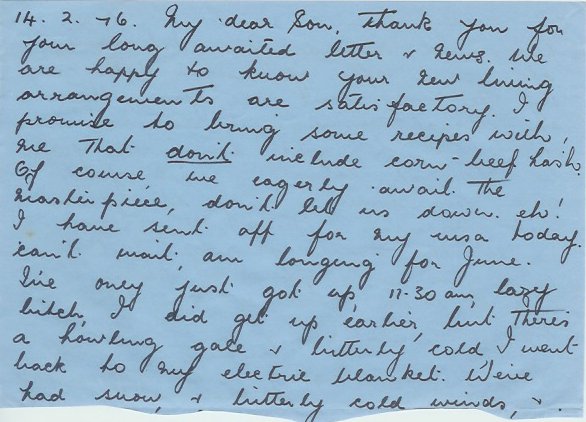 14. 2. 76. My dear Son, thank you for
your long awaited letter & news. We
are happy to know your new living
arrangements are satisfactory. I
promise to bring some recipes with,
me that don't include corn-beef hash.
Of course we eagerly await the
masterpiece, don't let us down. eh!
I have sent off for my visa today.
can't wait, am longing for June.
I've only just got up, 11-30 am, lazy
bitch, I did get up earlier, but there's
a howling gale & bitterly cold I went
back to my electric blanket. We've
had snow, & bitterly cold winds, &.